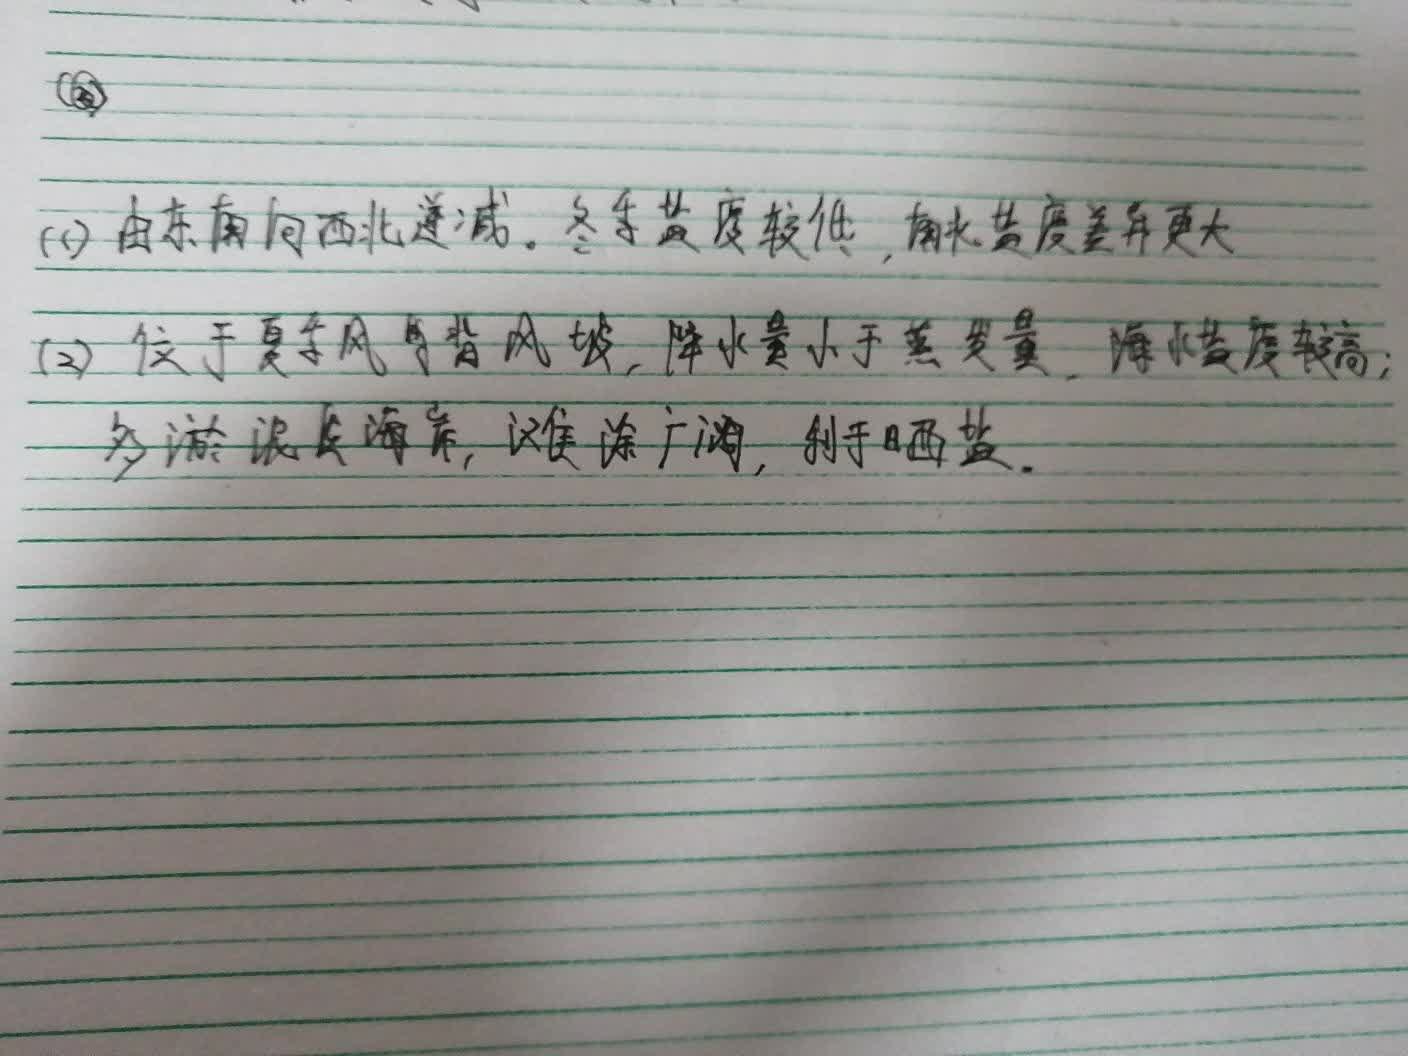 (1) 由东南向西北递减。冬季盐度较低,南北盐度差异更大
(2) 位于夏季风背风坡,降水量小于蒸发量,海水盐度较高;
多淤泥质海岸,滩涂广阔,利于晒盐.